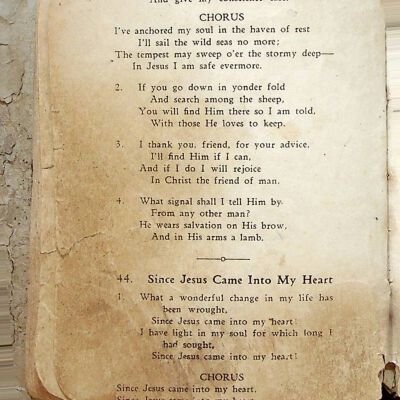 And give my conscience ease.
CHORUS
I've anchored my soul in the haven of rest
I'll sail the wild seas no more;
The tempest may sweep o'er the stormy deep—
In Jesus I am safe evermore.
2. If you go down in yonder fold
And search among the sheep,
You will find Him there so I am told,
With those He loves to keep.
3. I thank you, friend, for your advice,
I'll find Him if I can,
And if I do I will rejoice
In Christ the friend of man.
4. What signal shall I tell Him by
From any other man?
He wears salvation on His brow,
And in His arms a lamb.
44. Since Jesus Came Into My Heart
1. What a wonderful change in my life has
been wrought,
Since Jesus came into my heart!
I have light in my soul for which long I
had sought,
Since Jesus came into my heart!
CHORUS
Since Jesus came into my heart,
Since Jesus came into my heart,